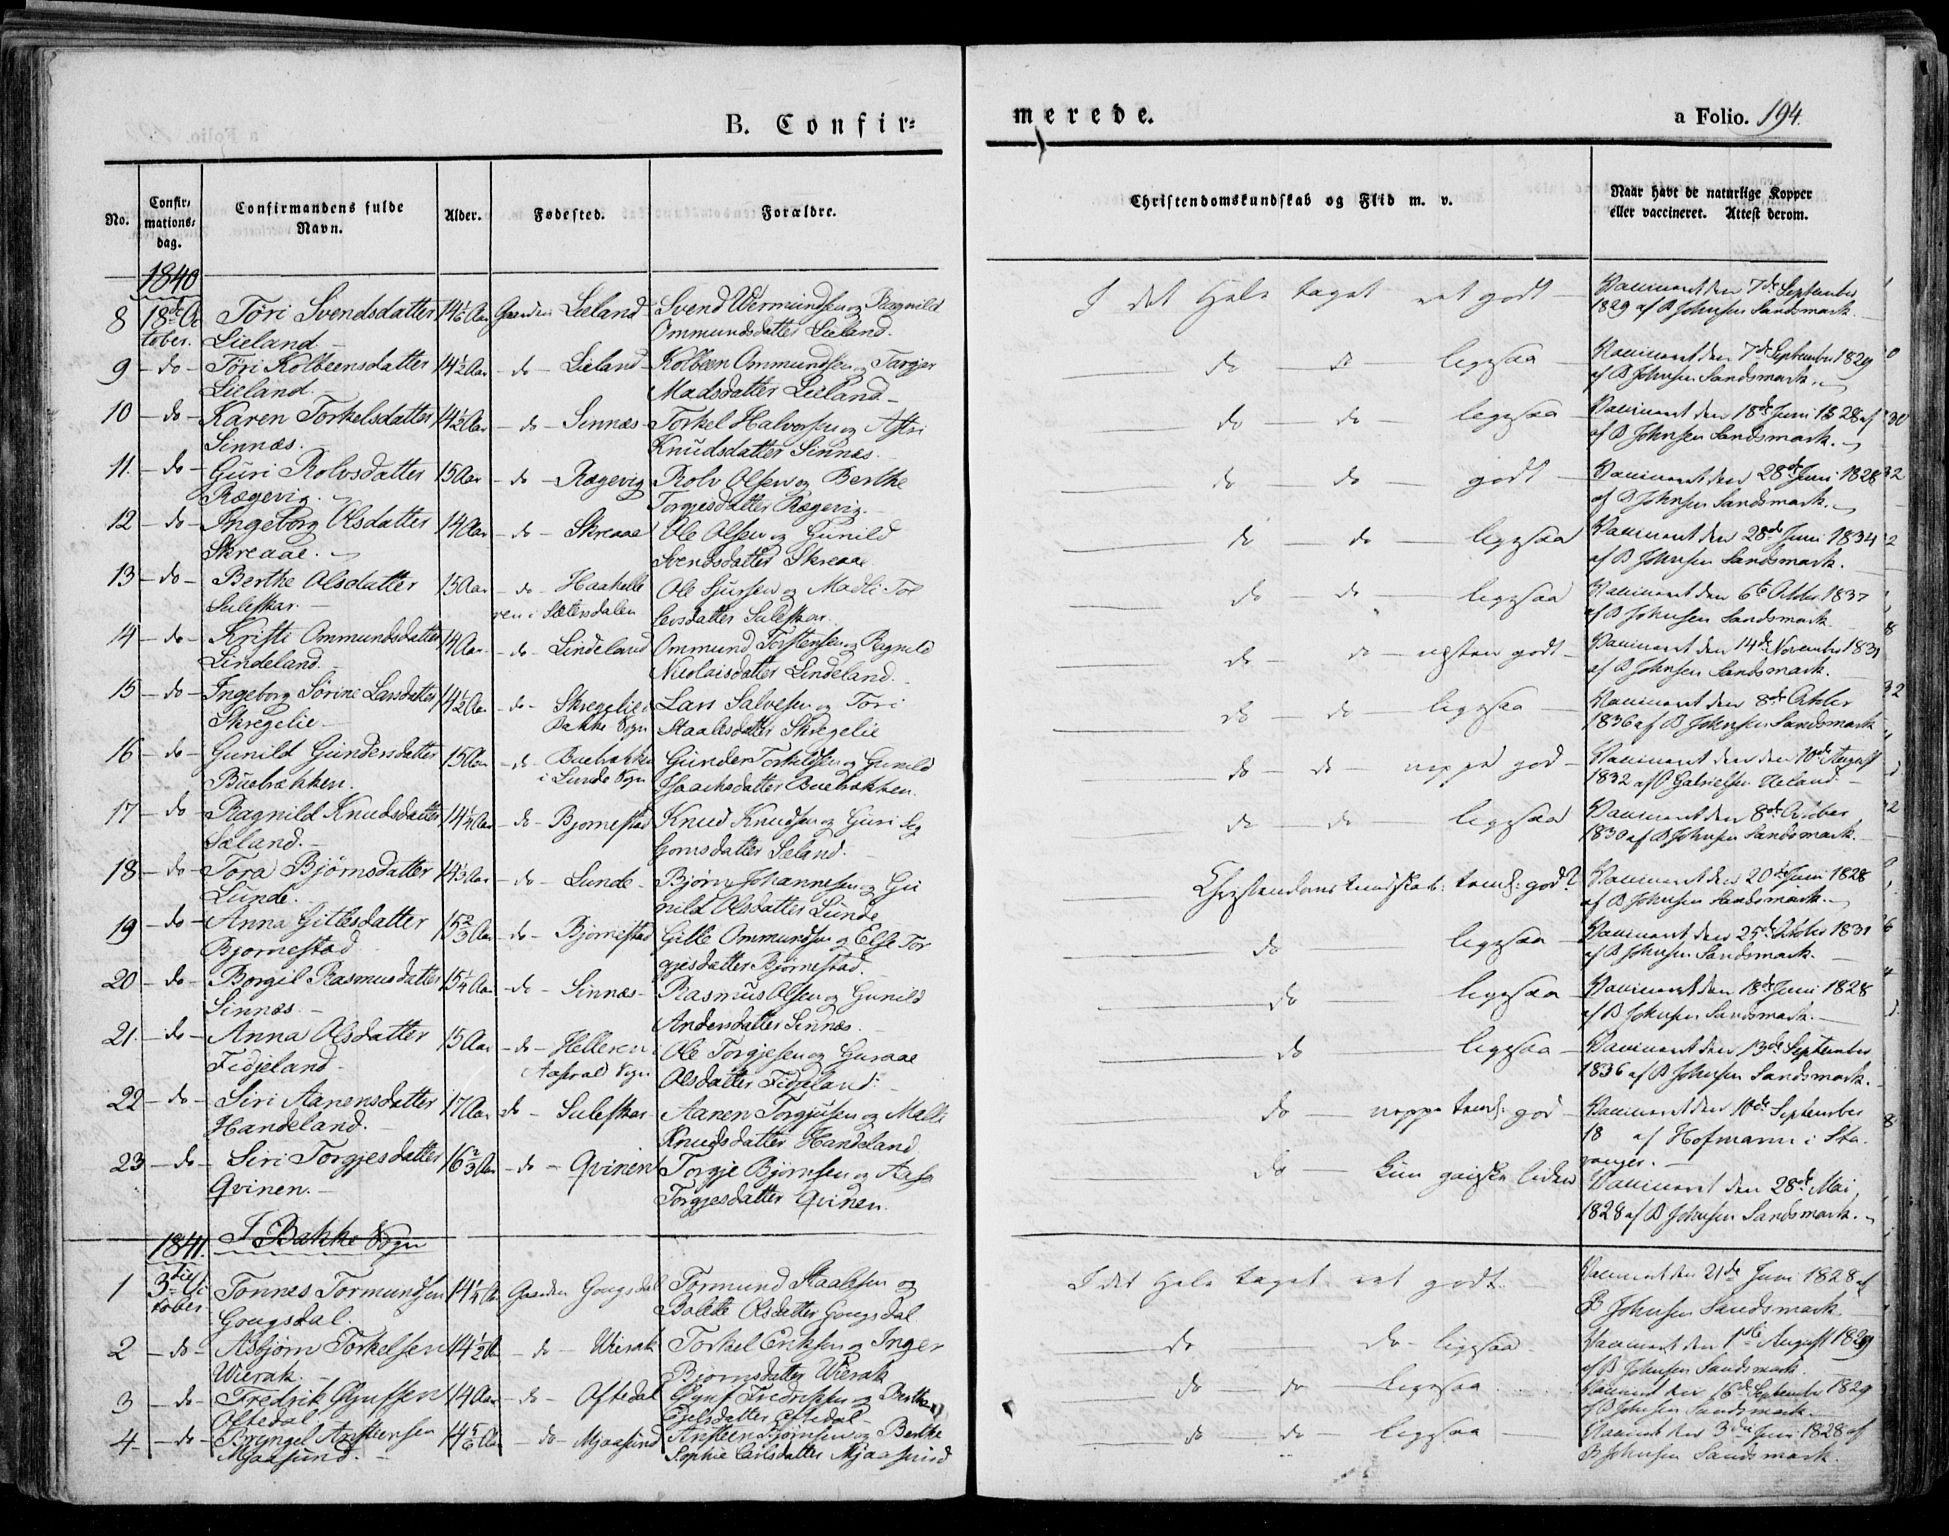 B. Confir=
merede.
a Folio. 194.
No.
Confir,
mations,
dag.
Confirmandens fulde
Navn.
Alder.
Fødested.
Forældre.
Christendomskundskab og Flid m. v.
Naar havt de naturlige Kopper
eller vaccineret. Attest derom.
1840
8 18de Oc Töri Svendsdatter 14 Aar Gaarden Lieland Svend Wermundsen og Ragnild I det Hele taget ret godt Vaccineret den 7de September
tober. Lieland Ommundsdatter Lieland. 1829 af B Johnsen Sandsmark.
9 - do - Töri Kolbeensdatter 14½ Aar - do - Lieland Kolbeen Ommundsen og Torger do do ligesaa Vaccineret den 7de September 1829
Lieland. Madsdatter Lieland af B Johnsen Sandsmark.
10 - do - Karen Torkelsdatter 14½ Aar - do - Sinnæs Torkel Halvorsen og Astri do do ligesaa Vaccineret den 18de Juni 1828 af
Sinnæs. Knudsdatter Sinnæs. af B Johnsen Sandsmark.
11. - do - Guri Rolvsdatter 15 Aar - do - Rægevig Rolv Olsen og Berthe do do godt Vaccineret den 28de Juni 1828
Rægevig. Torgjesdatter Rægevig. af B Johnsen Sandsmark.
12 - do - Ingeborg Olsdatter 14 Aar - do - Skreaae Ole Olsen og Gunild do do ligesaa Vaccineret den 28de Juni 1834
Skreaae. Svendsdatter Skreaae af B Johnsen Sandsmark.
13 - do - Berthe Olsdatter 15 Aar - do - Haahelle Ole Sjursen og Madli Tor do do ligesaa Vaccineret den 6te Octbr 1837
Suleskar. ren i Sætersdalen levsdatter Suleskar. af B Johnsen Sandsmark
14 - do - Kristi Ommundsdatter 14 Aar - do - Lindeland Ommund Torstensen og Ragnild do do næsten godt Vaccineret den 14de November 1831
Lindeland. Nicolaisdatter Lindeland. af B Johnsen Sandsmark.
15 - do - Ingeborg Sörine Larsdatter 14½ Aar - do - Skregelie i Lars Salvesen og Tori do do ligesaa Vaccineret den 8de October
Skregelie. Bakke Sogn Staalesdatter Skregelie 1836 af B Johnsen Sandsmark
16 - do - Gunild Gundersdatter 15 Aar - do - Buebakken Gunder Torkildsen og Gunild do do neppe god Vaccineret den 10de August
Buebakken. i Lunde Sogn Isaachsdatter Buebakken. 1832 af O Gabrielsen Ueland
17 - do - Ragnild Knudsdatter 14¼ Aar - do - Bjornestad Knud Knudsen og Guri Seg do do ligesaa Vaccineret den 8de October
Sæland. Gomsdatter Sæland. 1830 af B Johnsen Sandsmark.
18 - do - Tora Bjørnsdatter 14⅓ Aar - do - Lunde Bjørn Johannesen og Gu Christendoms kundskab: temml: god? Vaccineret den 20de Juni 1828
Lunde. nild Olsdatter Lunde af B Johnsen Sandsmark.
19 - do - Anna Gitlesdatter 15⅔ Aar - do - Bjørnestad Gitle Ommundsen og Else Tor do ligesaa Vaccineret den 25de October 1831
Bjornestad gjesdatter Bjørnestad. af B Johnsen Sandsmark.
20 - do - Borgil Rasmusdatter 15¼ Aar - do - Sinnæs Rasmus Olsen og Gunild do ligesaa Vaccineret den 18de Juni 1828
Sinnæs. Andersdatter Sinnæs. af B Johnsen Sandsmark.
21. - do - Anna Olsdatter 15 Aar - do - Helleren i Ole Torgjesen og Guroae do ligesaa Vaccineret den 13de September
Fidjeland. Aaserald Sogn Olsdatter Fidjeland. 1836 af B Johnsen Sandsmark.
22 - do - Siri Aanensdatter 17 Aar do - Suleskar Aanen Torgjusen og Malli do neppe temml: god Vaccineret den 10de September
Handeland. Knudsdatter Handeland 18 af Hofmann i Sta
vanger.
23 - do - Siri Torgjesdatter 16⅔ Aar - do - Qvinen Torgje Bjørnsen og Aase do kun ganske liden Vaccineret den 28de Mai
Qvinen. Torgjesdatter Qvinen. 1828 af B Johnsen Sandsmark.
1841. I Bakke Sogn
1 3die Oc Tonnes Tormundsen 14¼ Aar Gaarden Gougsdal Tormund Staalesen og I det Hele taget ret godt. Vaccineret den 21de Juni 1828 af
tober Gougsdal. Bolete Olsdatter Gougsdal B Johnsen Sandsmark
2 - do - Asbjørn Torkelsen 14½ Aar - do - Wierak Torkel Eriksen og Inger do do ligesaa Vaccineret den 1ste August 1829
Wierak. Bjornsdatter Wierak af B Johnsen Sandsmark.
3 - do - Fredrik Øynsen 14 Aar - do - Oftedal Øyn Fredriksen og Berthe do do ligesaa Vaccineret den 16de September 1829
Oftedal Egelsdatter Oftedal af B Johnsen Sandsmark
4 - do - Bryngel Arstensen 14⅚ Aar - do - Mjaasund Arsteen Bjørnsen og Berthe do do ligesaa Vaccineret den 3die Juni 1828 af
Mjaasund. Sophie Carlsdatter Mjaasund B Johnsen Sandsmark.